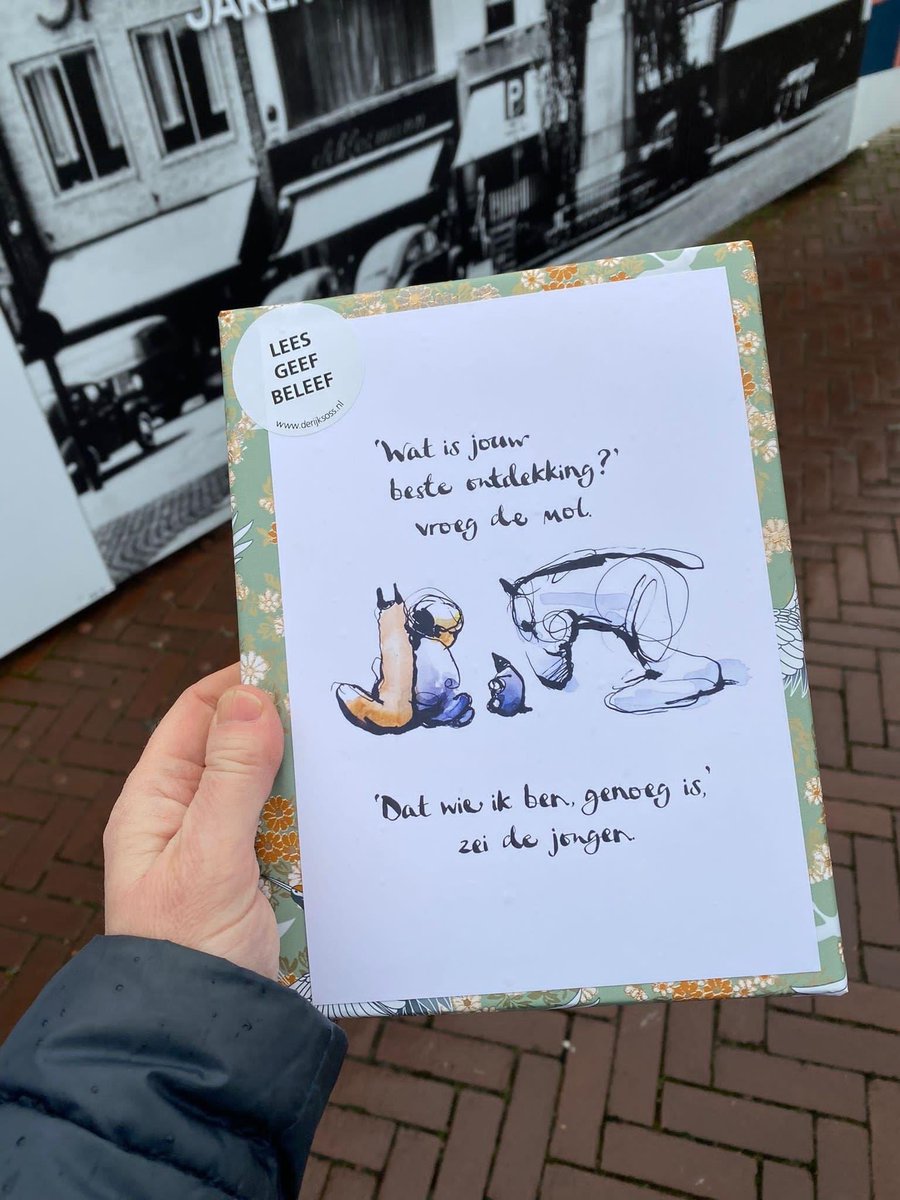 LEES
GEEF
BELEEF
www.derijksoss.nl
'Wat is jouw
beste ontdekking?'
vroeg de mol.
'Dat wie ik ben, genoeg is,'
zei de jongen.
P